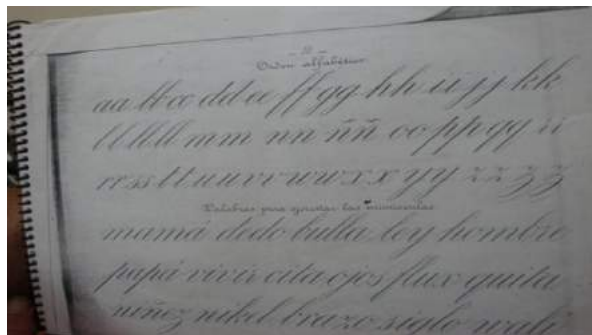 Orden alfabético
aa bb cc dd ee ff gg hh ii jj kk
ll llll mm nn ññ oo pp qq
rr ss tt uu vv ww xx yy zz
Palabras para ejercitar las minúsculas
mamá dedo bulla ley hombre
papá vivir cita ojos flux quita
nikel brazo siglo